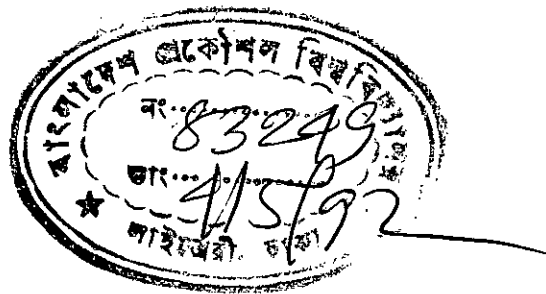 বাংলাদেশ প্রকৌশল বিশ্ববিদ্যালয়
নং 83249
তাং 4/5/92
লাইব্রেরী, ঢাকা